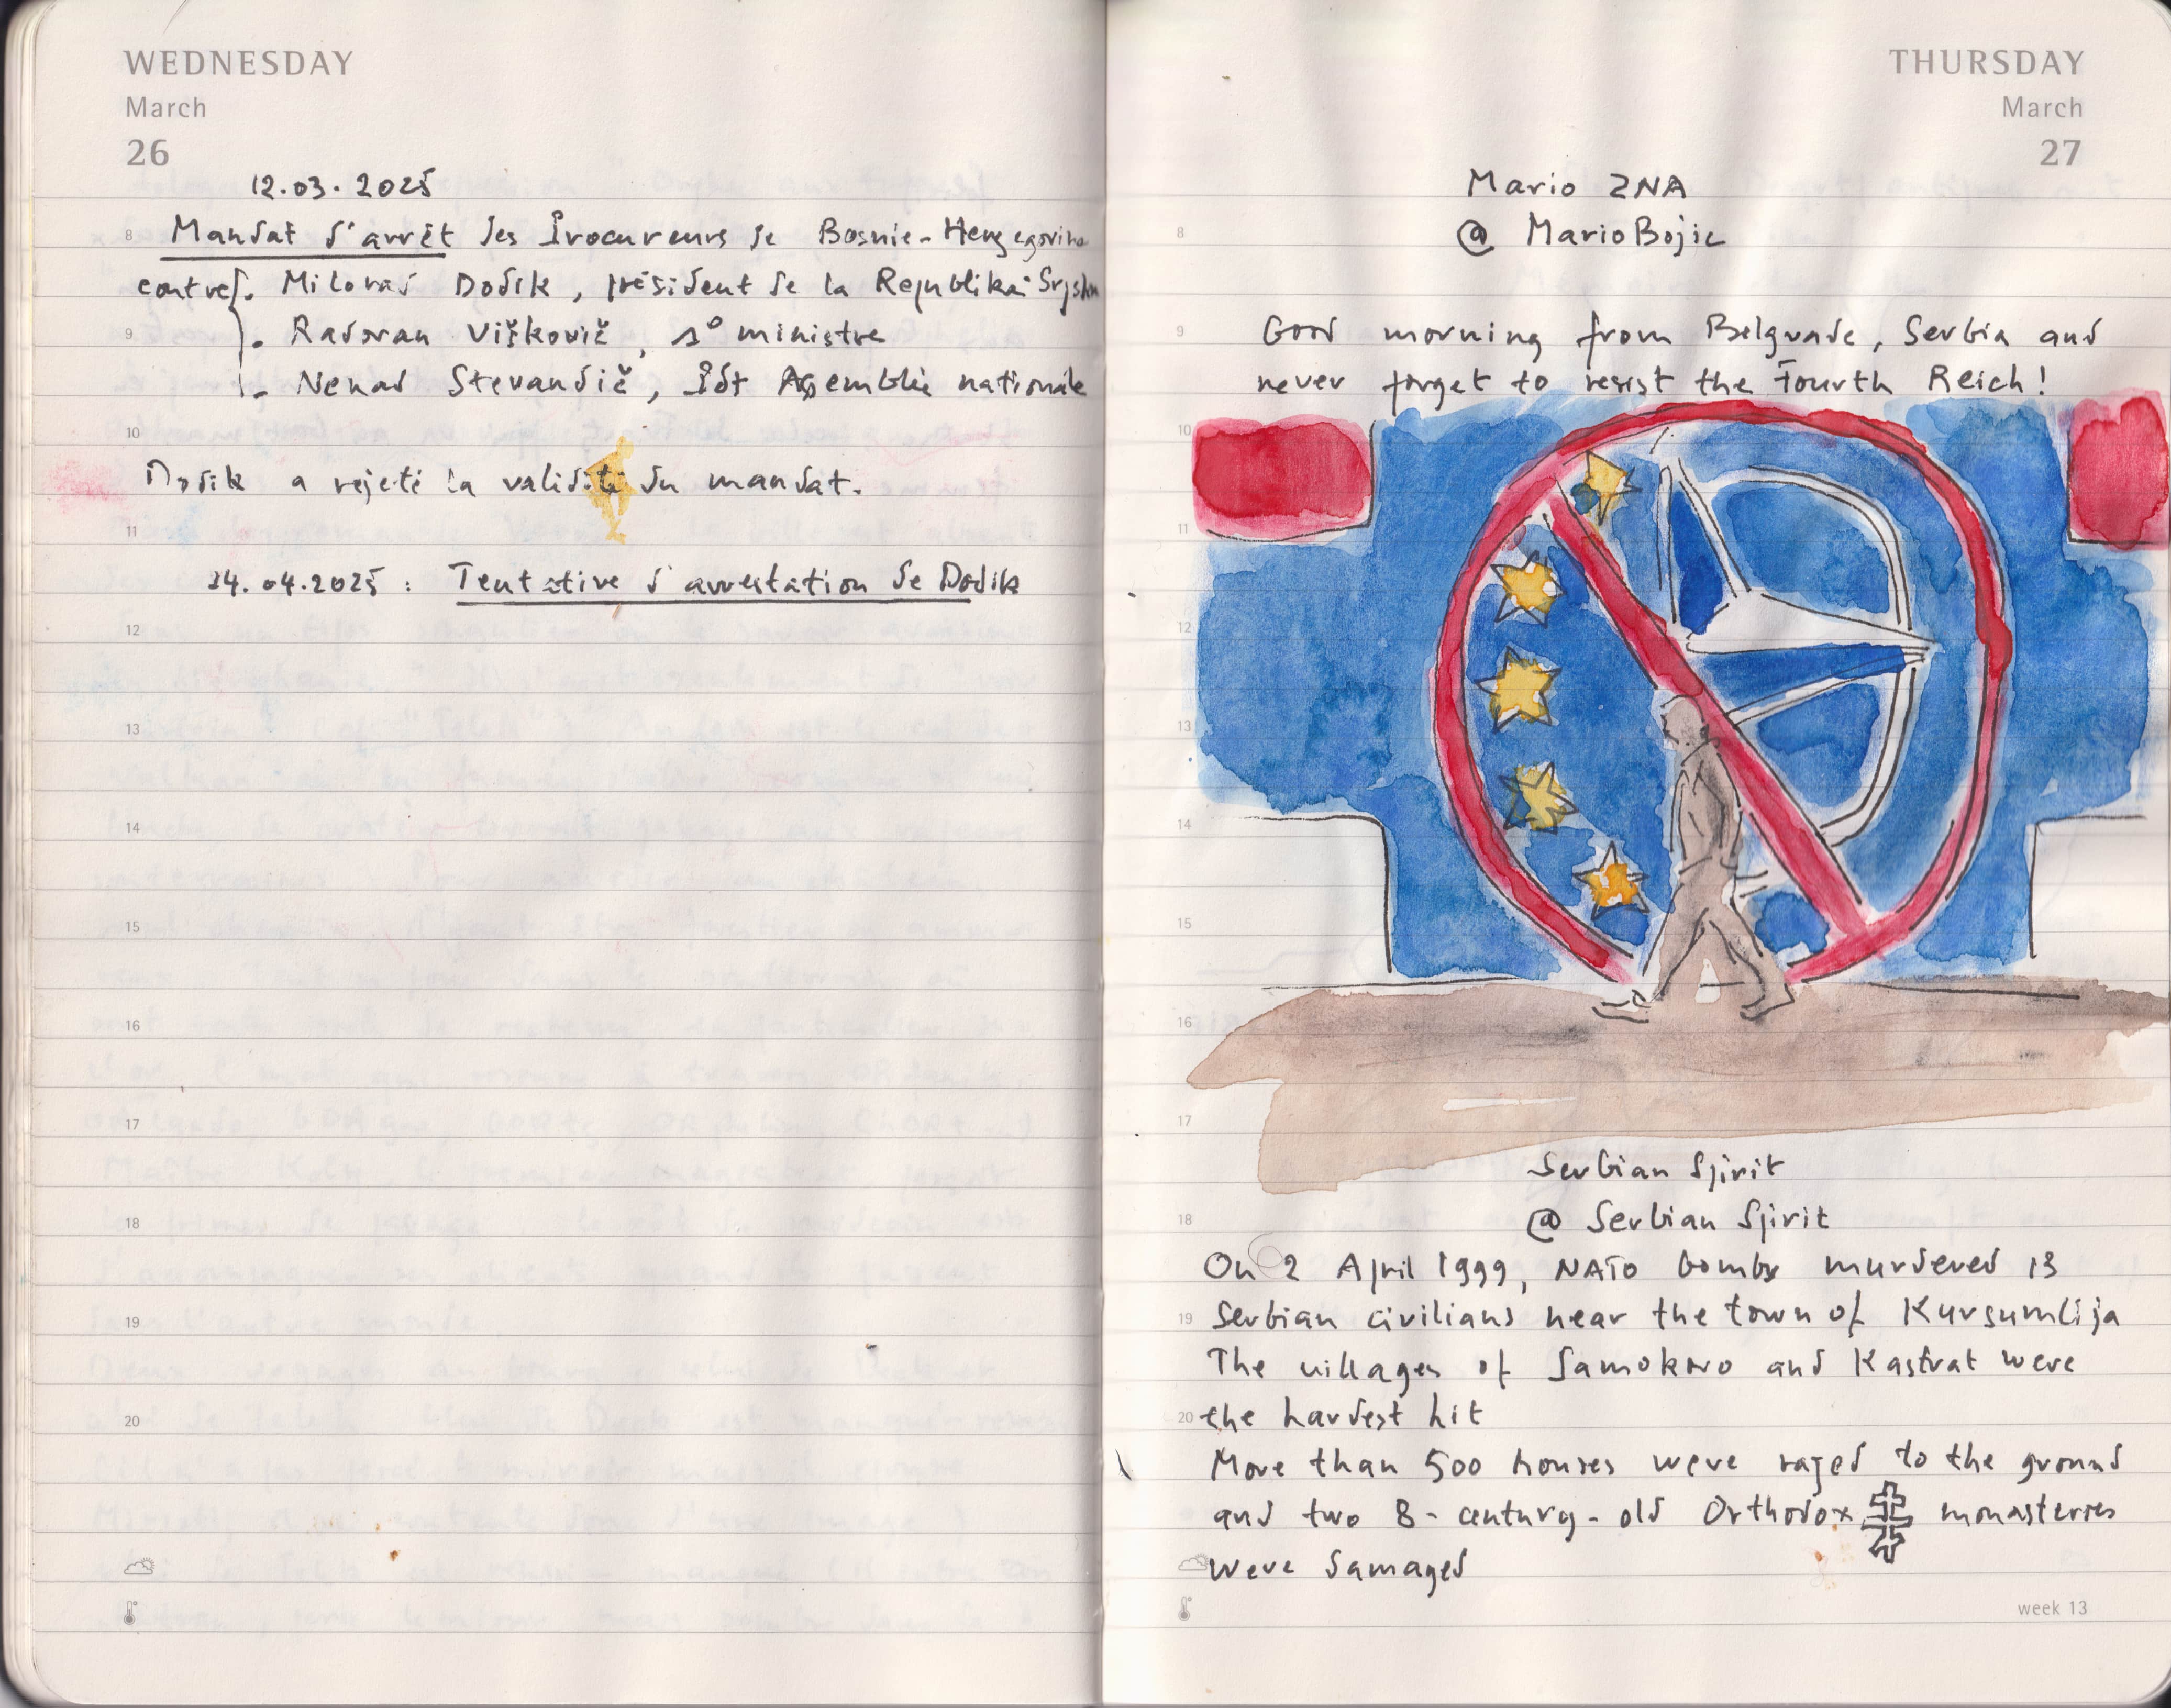 WEDNESDAY
March
26
12.03.2025
8 Mandat d'arrêt des Procureurs de Bosnie-Herzegovine
contre . Milorad Dodik, président de la Republika Srpska
9 . Radovan Višković, 1° ministre
. Nenad Stevandić, Pdt Assemblée nationale
10
Dodik a rejeté la validité du mandat.
11
24.04.2025 : Tentative d'arrestation de Dodik
12
13
14
15
16
17
18
19
20
THURSDAY
March
27
Mario ZNA
8 @ MarioBojic
9 Good morning from Belgrade, Serbia and
never forget to resist the Fourth Reich!
10
11
12
13
14
15
16
17
Serbian Spirit
18 @ Serbian Spirit
On 2 April 1999, NATO bombs murdered 13
19 Serbian civilians near the town of Kursumlija
The villages of Samokovo and Kastrat were
20 the hardest hit
More than 500 houses were razed to the ground
and two 8-century-old Orthodox monasteries
were damaged
week 13